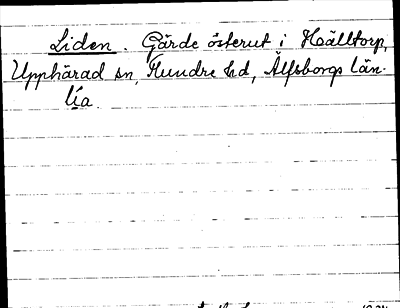 Liden. Gärde österut i Hoälltorp,
Upphärad sn, Flundre hd, Älfsborgs län.
lía